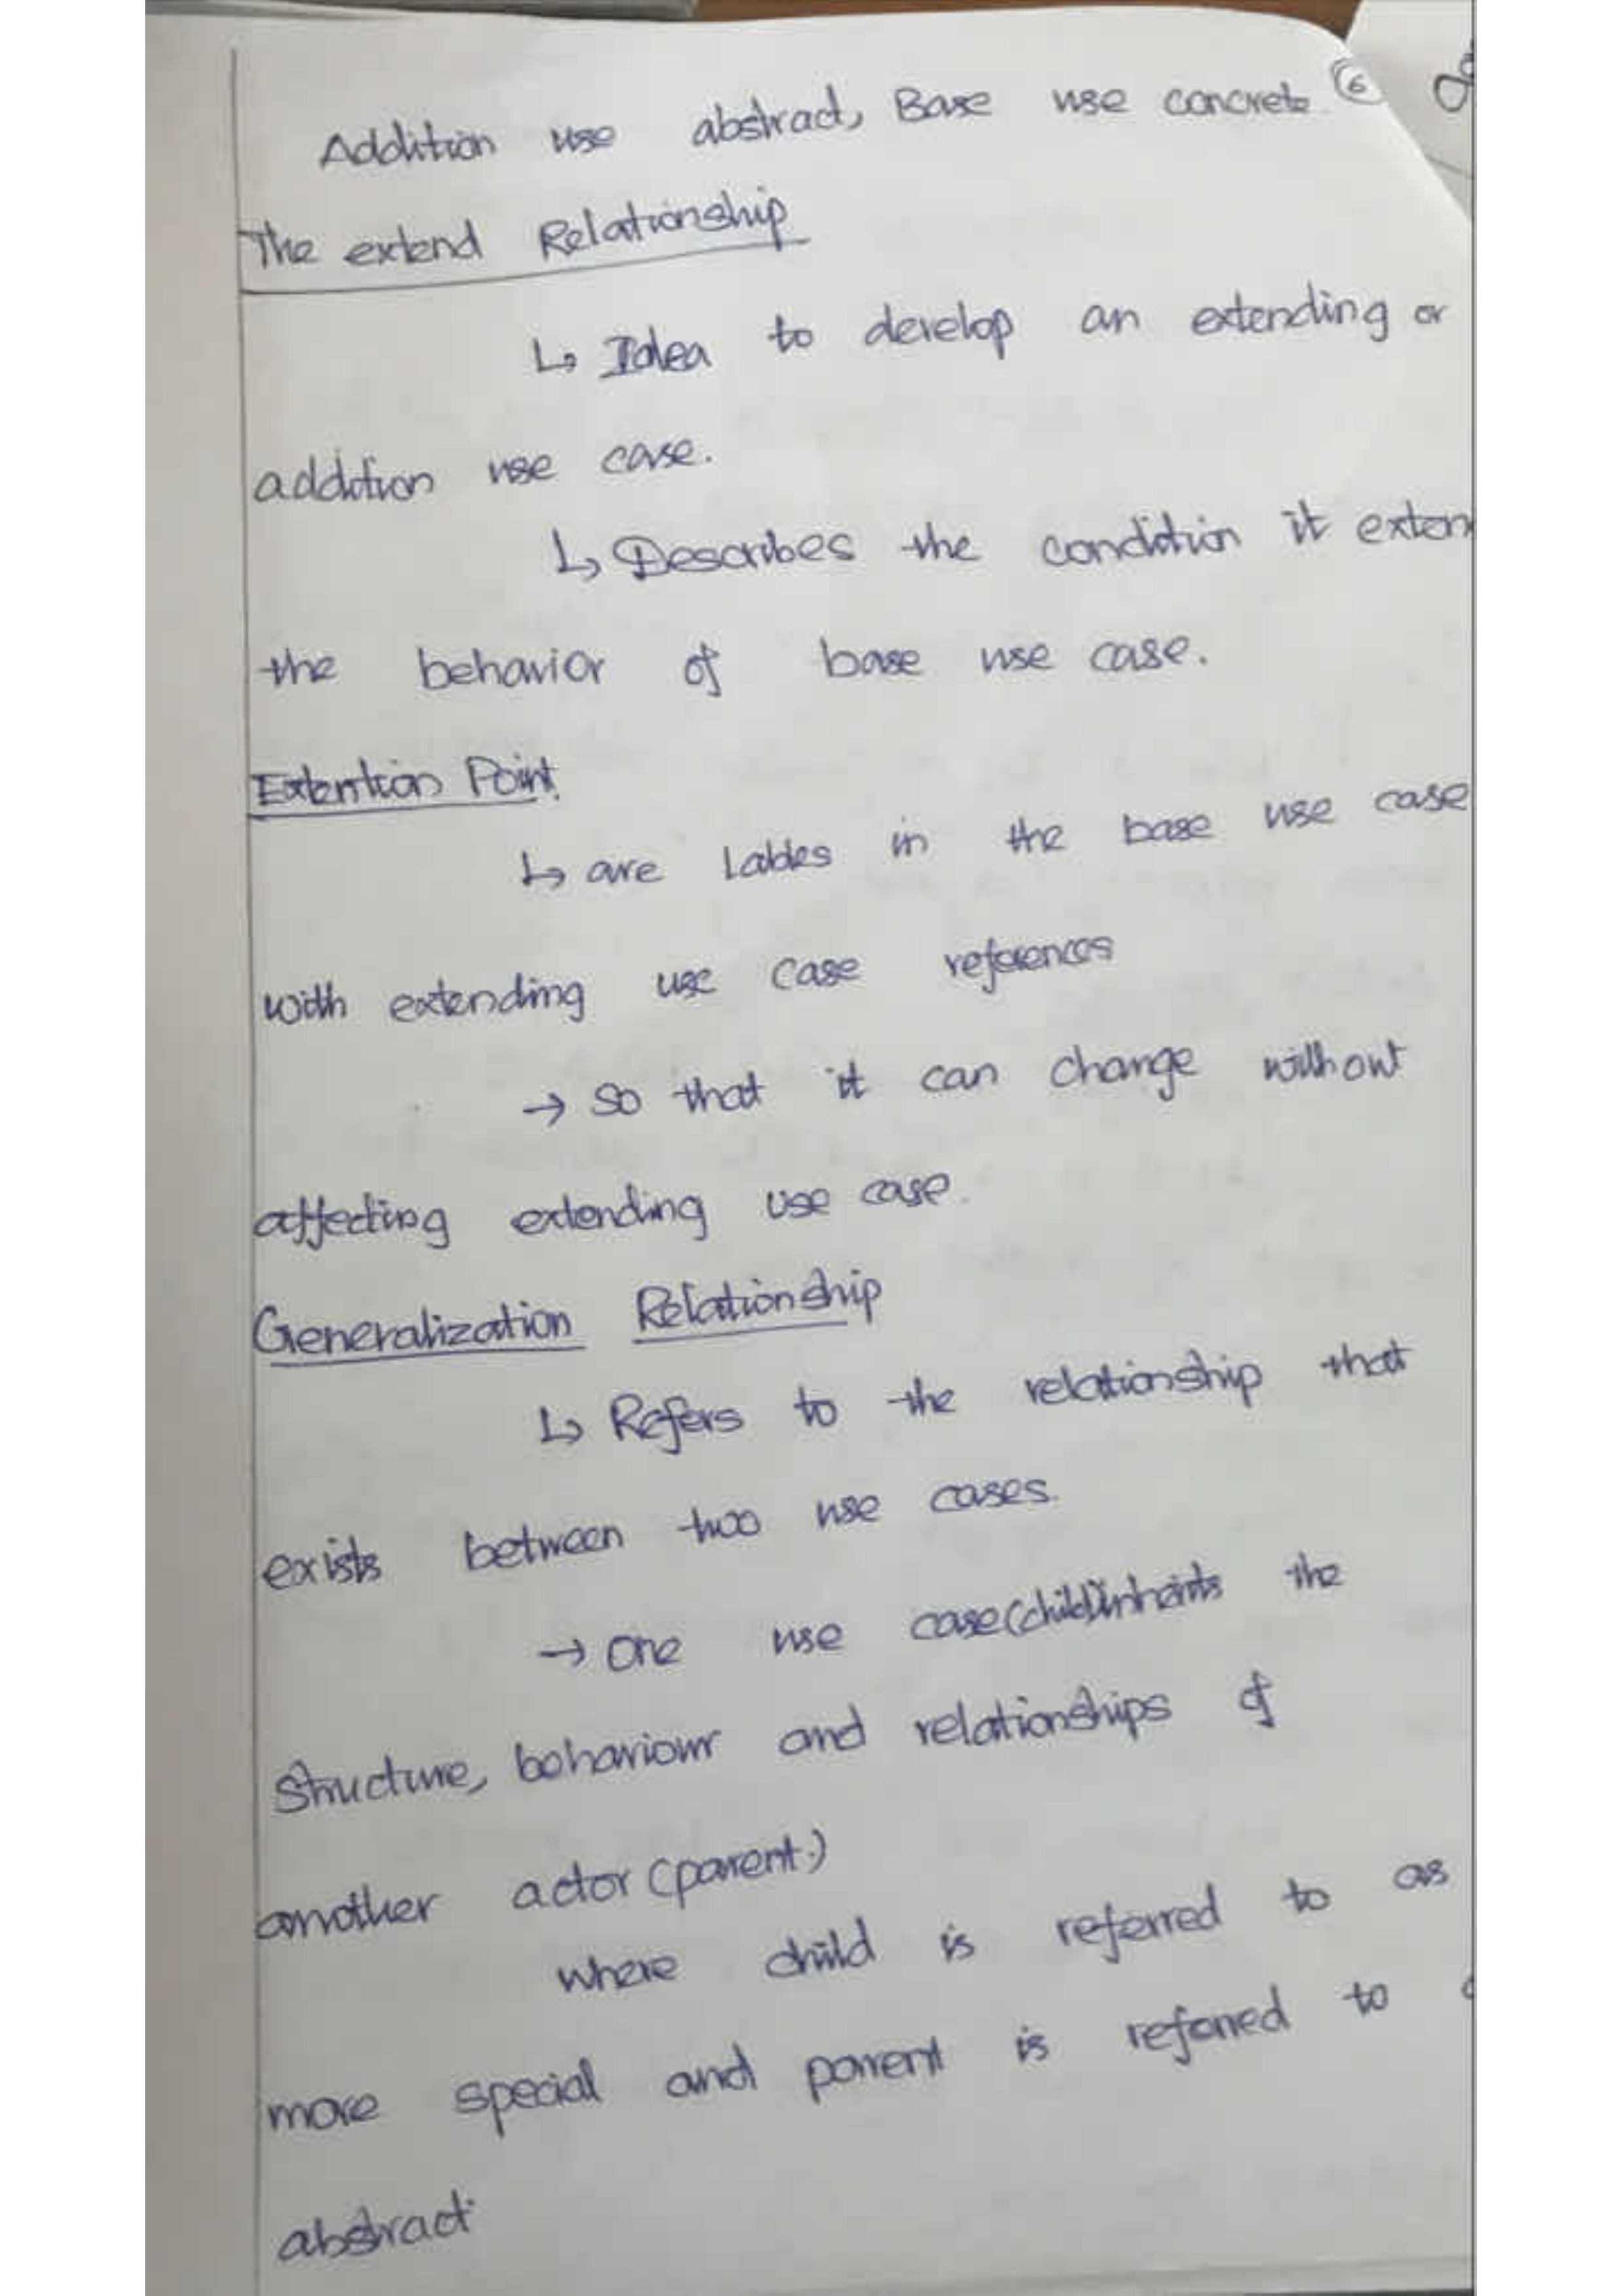 Addition use abstract, Base use concrete 6
The extend Relationship
↳ Idea to develop an extending or
addition use case.
↳ Describes the condition it exten
the behavior of base use case.
Extention Point.
↳ are Lables in the base use case
with extending use case references
→ so that it can change without
affecting extending use case.
Generalization Relationship
↳ Refers to the relationship that
exists between two use cases.
→ One use case(child)inherits the
Structure, behaviour and relationships of
another actor (parent.)
where child is referred to as
more special and parent is referred to
abstract